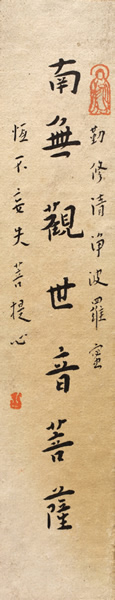 勤修清淨波羅蜜
南無觀世音菩薩
恆不忘失菩提心